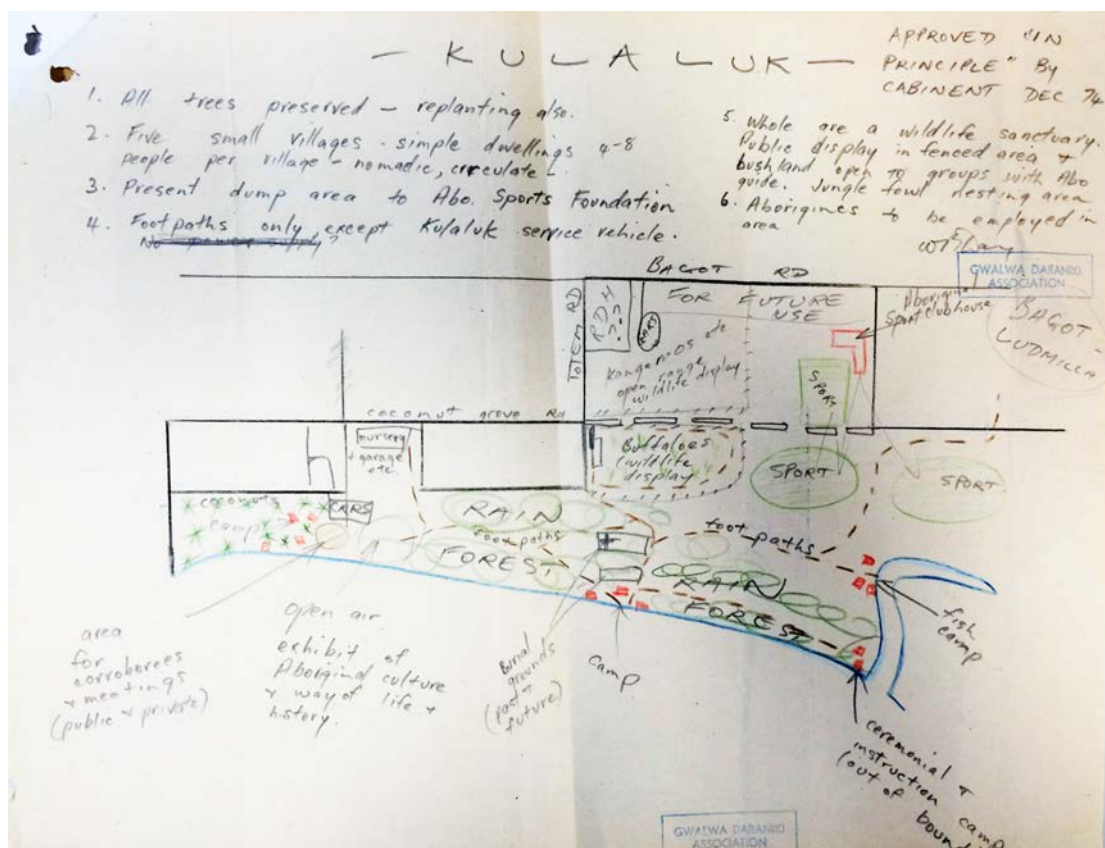 — KULALUK —
APPROVED "IN
PRINCIPLE" By
CABINENT DEC 74
1. All trees preserved - replanting also.
2. Five small villages - simple dwellings 4-8
people per village - nomadic, circulate
3. Present dump area to Abo. Sports Foundation
4. Footpaths only, except Kulaluk service vehicle.
No power supply?
5. Whole are a wildlife sanctuary.
Public display in fenced area +
bushland open to groups with Abo
guide. Jungle fowl nesting area
6. Aborigines to be employed in
area
GWALWA DARANIKI
ASSOCIATION
BAGOT RD
TOTEM RD
RDH
???
CARS
FOR FUTURE
USE
Aborigin
Sport clubhouse
BAGOT -
LUDMILLA
Kangaroos etc
open range
wildlife display
SPORT
coconut grove Rd
nursery
+ garage
etc
Buffaloes
(wildlife
display)
SPORT
SPORT
coconuts
camp
CARS
RAIN
foot paths
FOREST
foot paths
RAIN
FOREST
fish
camp
area
for
corroborees
+ meetings
(public + private)
open air
exhibit of
Aboriginal culture
+ way of life +
history.
Burial
grounds
(past +
future)
camp
ceremonial +
instruction camp
(out of
GWALWA DARANIKI
ASSOCIATION